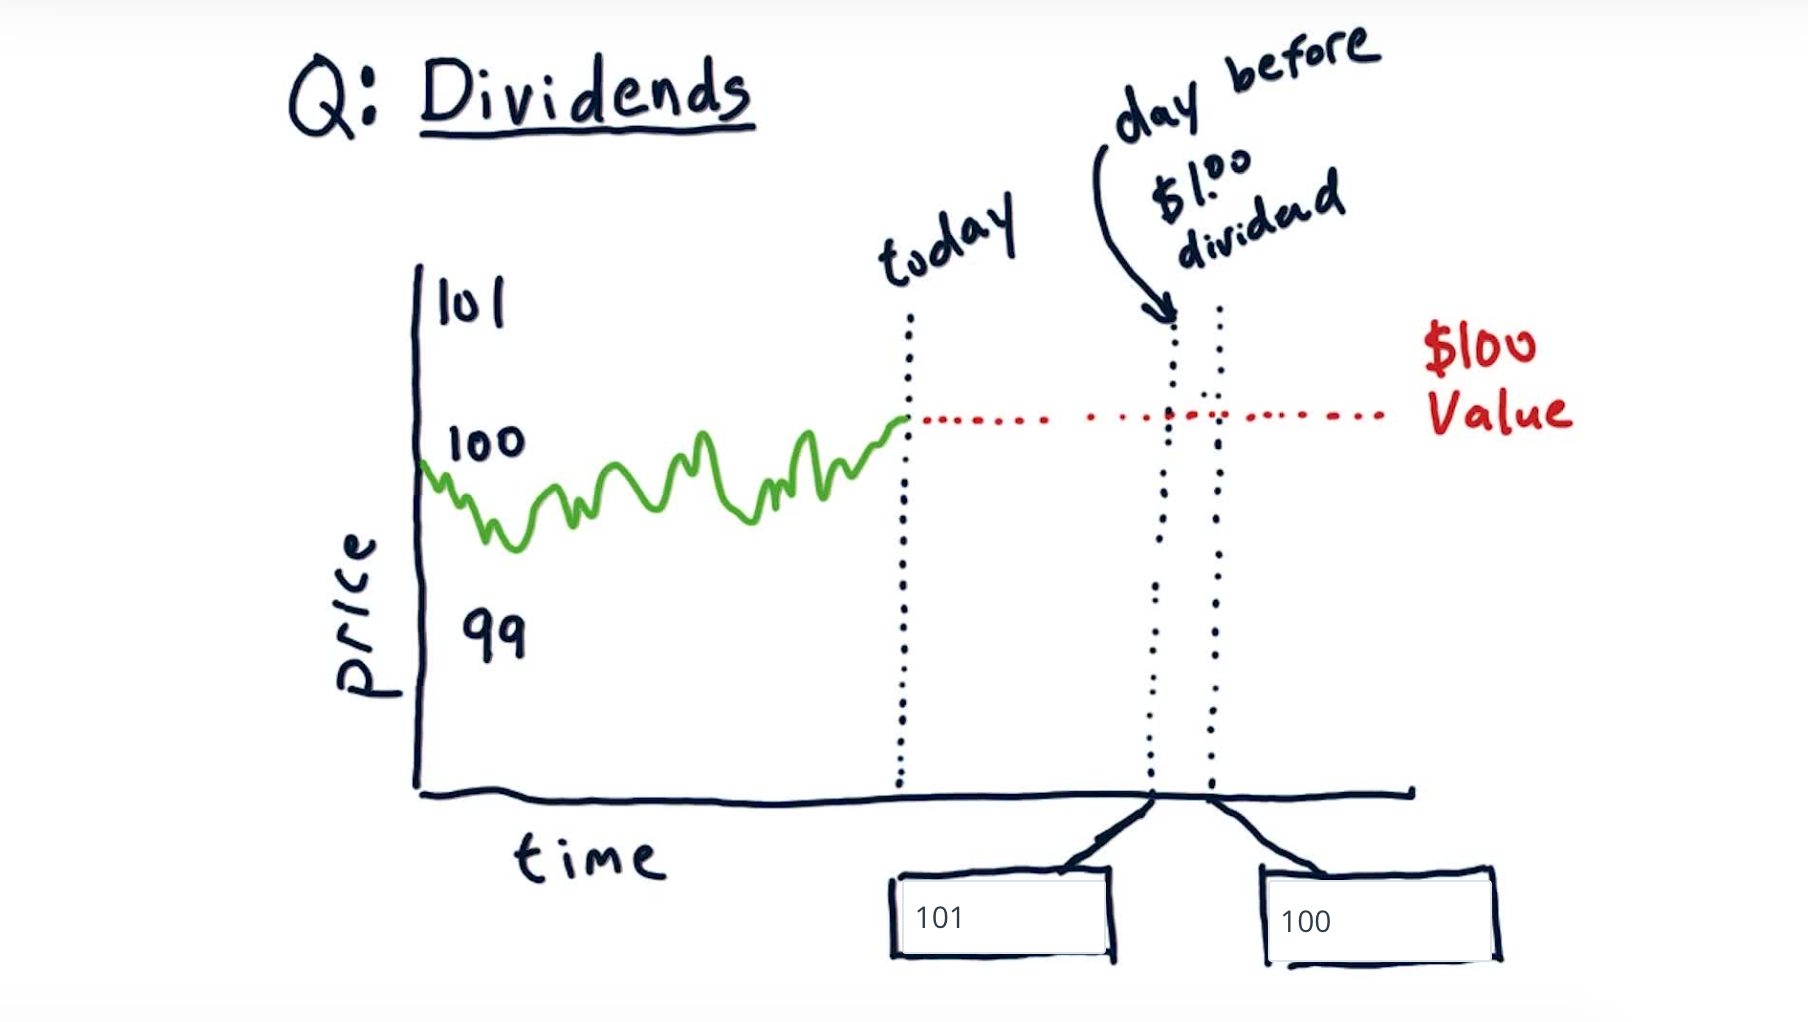 Q: Dividends
day before
$1.00
dividend
today
101
100
99
price
time
$100
Value
101
100